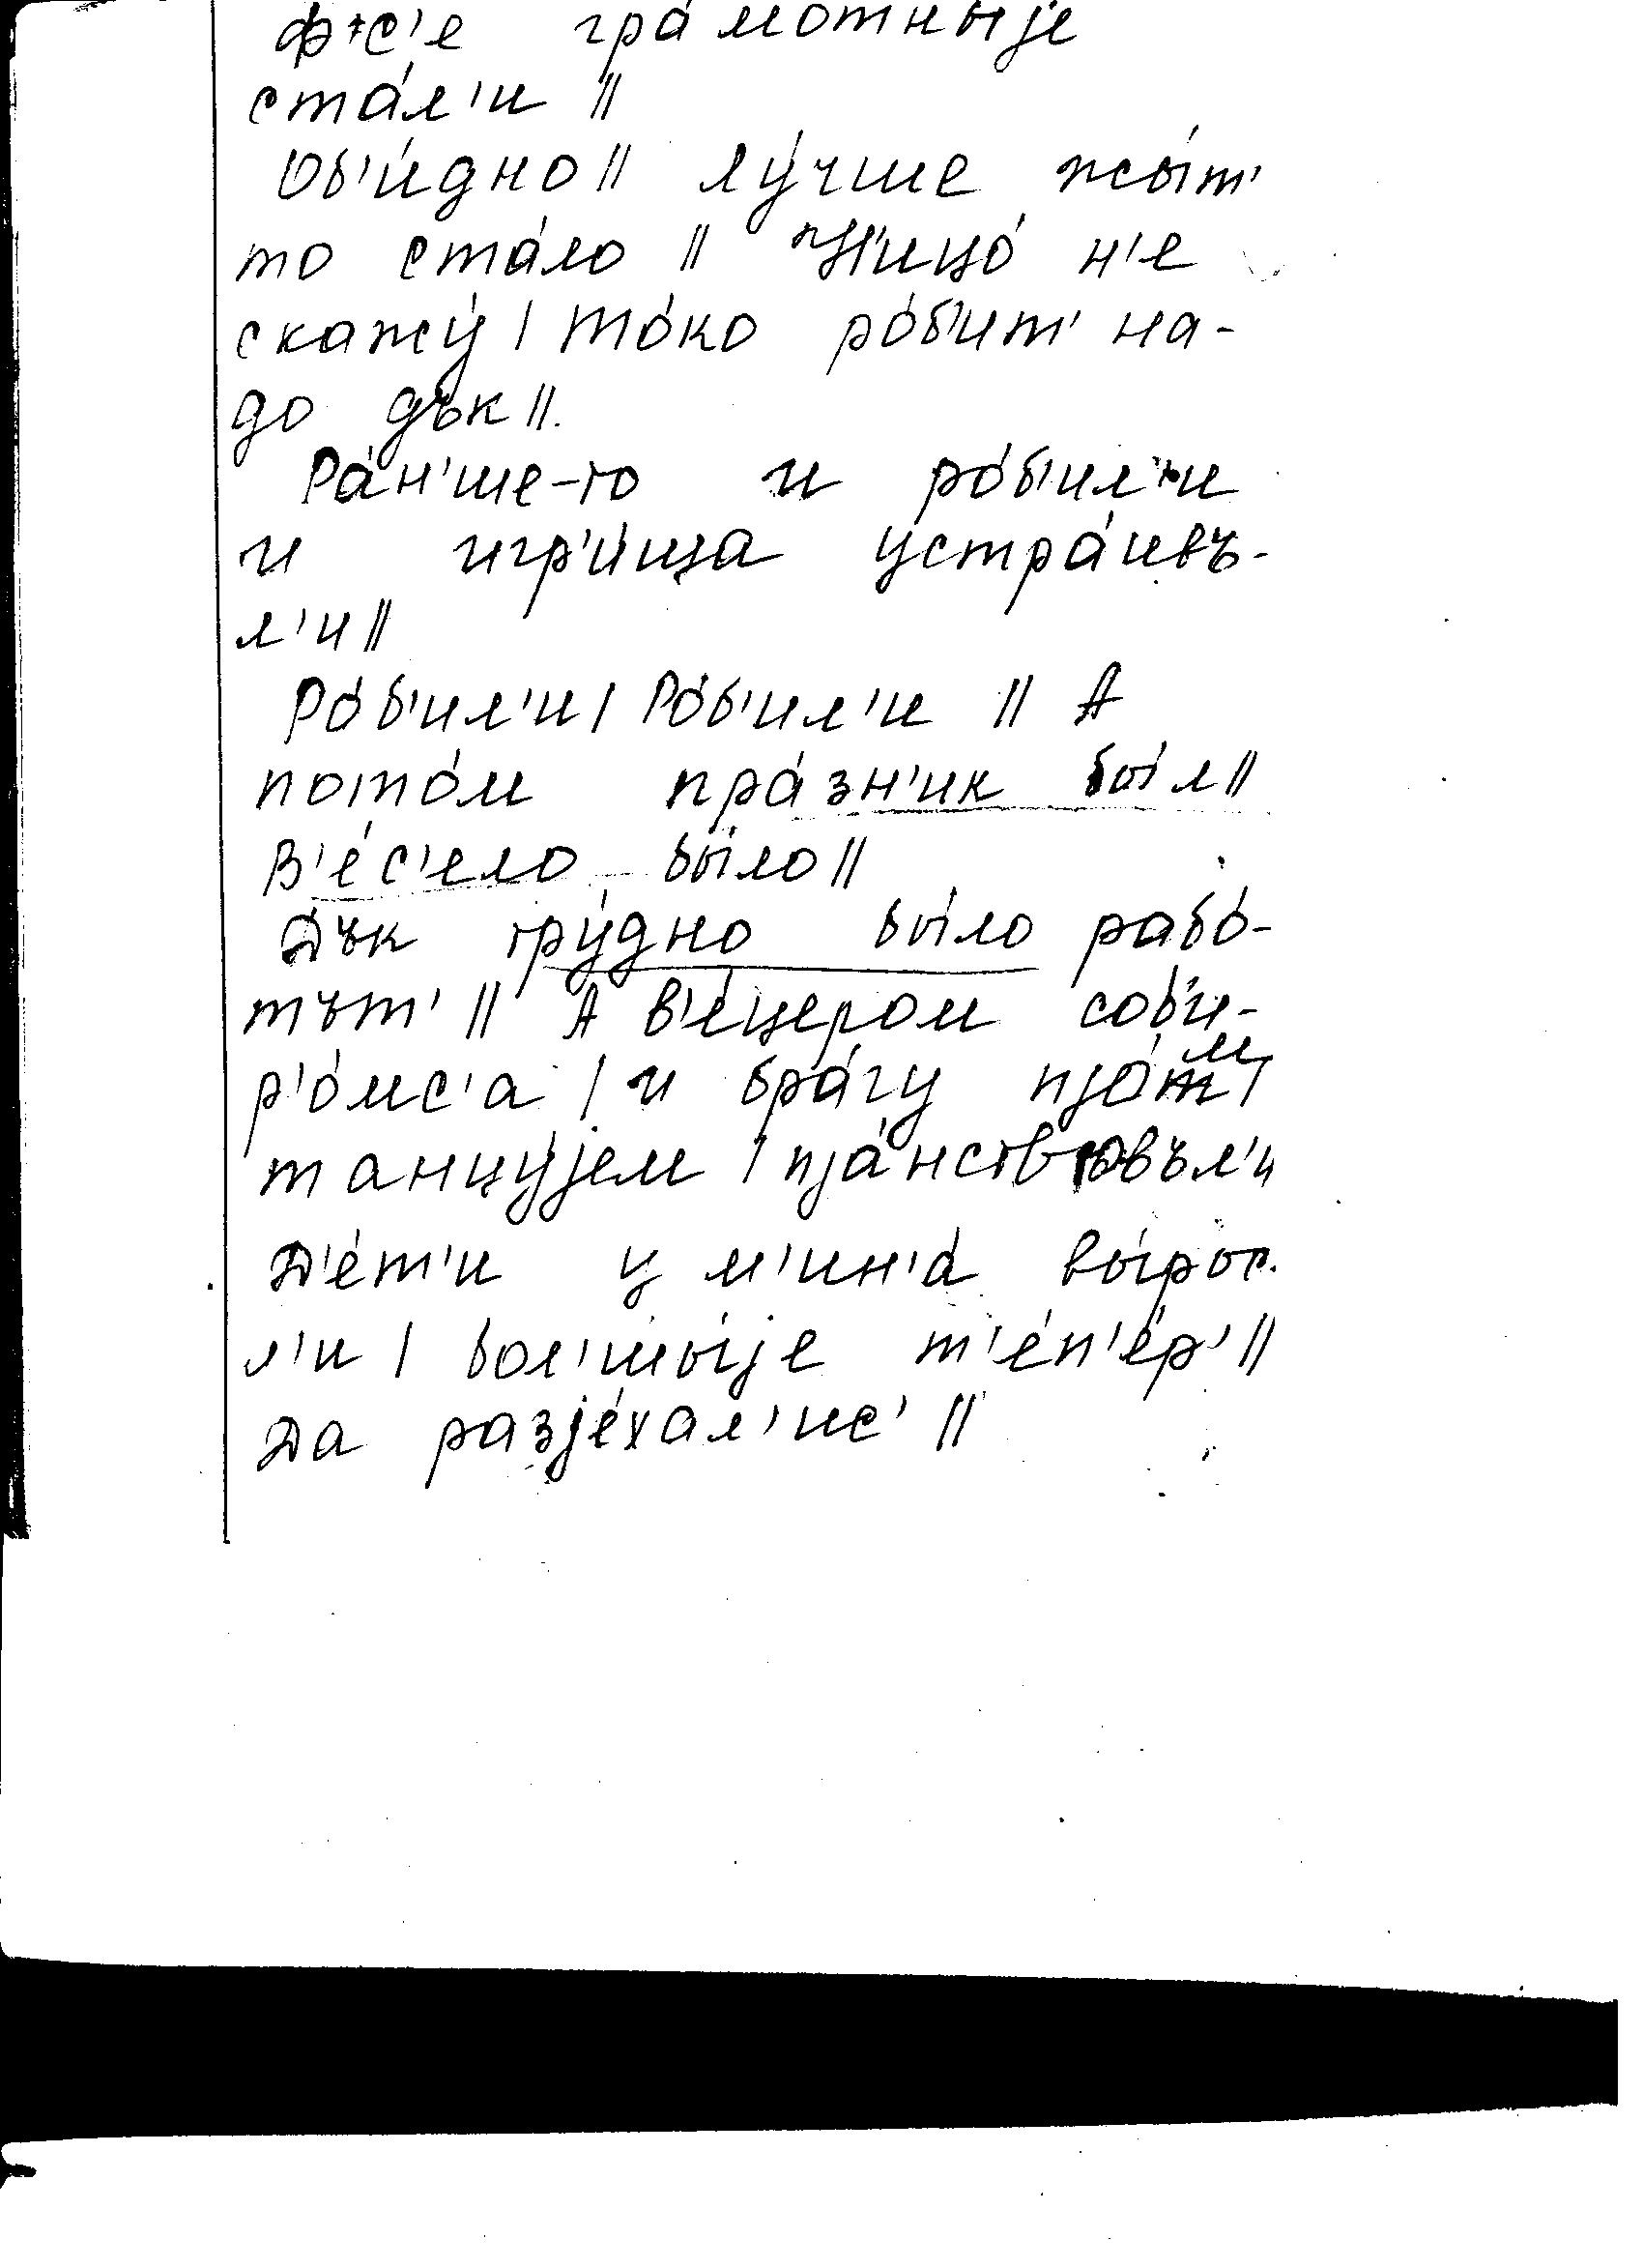 ф с'е гра́мотныjе
ста́л'и ||
Об'и́дно || лу́чше жы́т'
то ста́ло || Н'ицо́ н'е
скажу́ | то́ко ро́б'ит' на-
до дък ||.
Ра́н'ше-то и ро́б'ил'и
и игр'и́ща устра́ивъ-
л'и ||
Ро́б'ил'и | Ро́б'ил'и || А
пото́м пра́зн'ик бы́л ||
В'е́с'ело бы́ло ||
Дък тру́дно бы́ло рабо́-
тът' || А в'е́цером соб'и-
р'о́мс'а | и бра́гу пjо́м |
танцу́jем | пjа́нствовъл'и
Д'е́т'и у м'ин'а́ вы́рос-
л'и | бол'шы́jе т'е́п'е́р' ||
Да разjе́хал'ис' ||